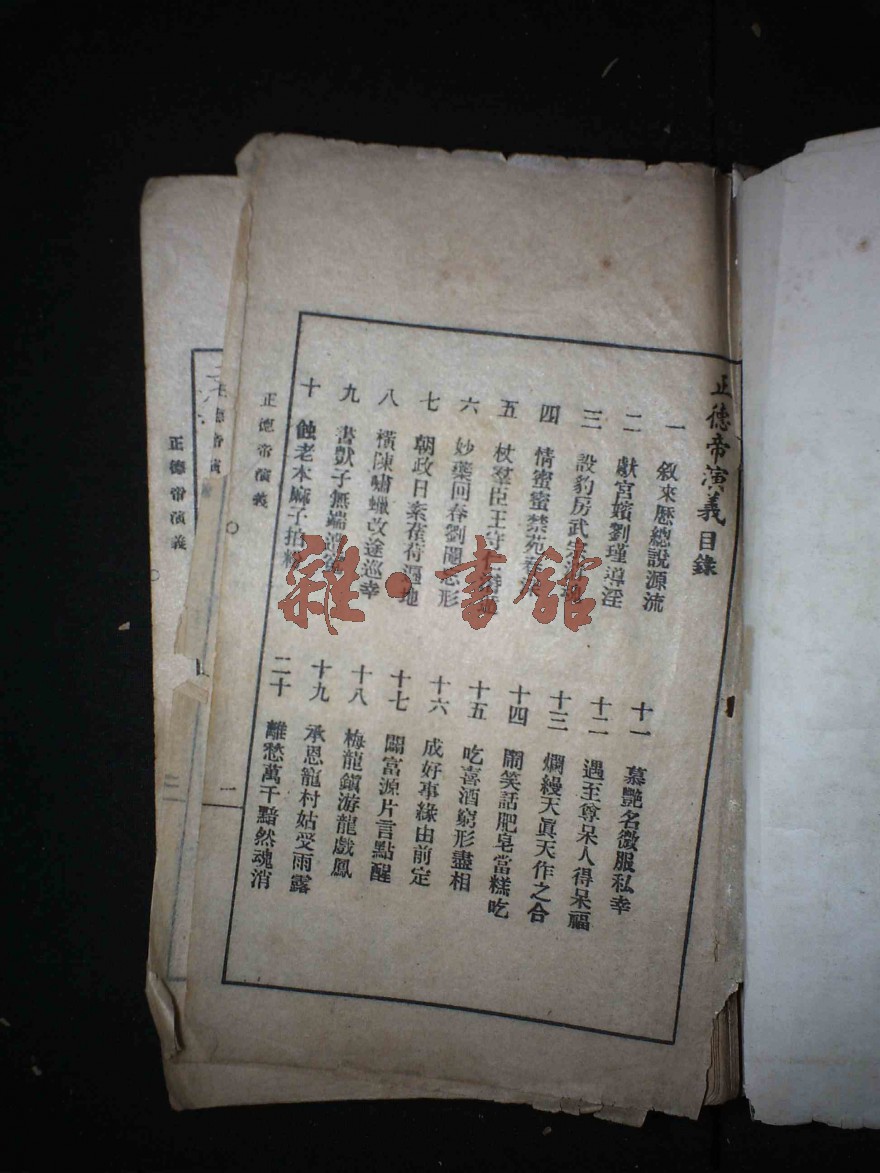 正德帝演義目錄
一 敘來歷總說源流
二 獻宮嬪劉瑾導淫
三 設豹房武宗
四 情蜜蜜禁苑
五 杖羣臣王守
六 妙藥回春劉閹忘形
七 朝政日紊萑苻遍地
八 橫陳嚼蠟改途巡幸
九 書獃子無端
十 蝕老本麻子拍
十一 慕艷名微服私幸
十二 遇至尊呆人得呆福
十三 爛縵天眞天作之合
十四 鬧笑話肥皂當糕吃
十五 吃喜酒窮形盡相
十六 成好事緣由前定
十七 闢富源片言點醒
十八 梅龍鎭游龍戲鳳
十九 承恩龍村姑受雨露
二十 離愁萬千黯然魂消
正德帝演義
一
正德帝演義
二
雜·書館